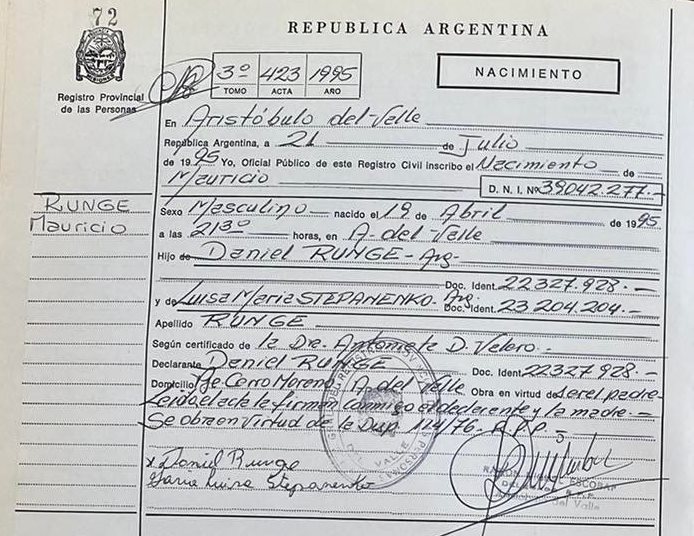 72
REPUBLICA ARGENTINA
Registro Provincial
de las Personas
3º 423 1995
TOMO ACTA AÑO
NACIMIENTO
En Aristóbulo del Valle
República Argentina, a 21 de Julio
de 1995 Yo, Oficial Público de este Registro Civil inscribo el Nacimiento de
Mauricio
D. N. I. Nº 39042.277.-
RUNGE
Mauricio
Sexo Masculino nacido el 19 de Abril de 1995
a las 21 3º horas, en A. del Valle
Hijo de Daniel RUNGE - Arg.
Doc. Ident. 22.327.928.-
y de Luisa Maria STEPANENKO. Arg. Doc. Ident. 23.204.204.-
Apellido RUNGE
Según certificado de la Dra. Antoniela D. Velero.-
Declarante Daniel RUNGE Doc. Ident. 22327.928.-
Domicilio Cerro Moreno, A. del Valle Obra en virtud de ser el padre
Leido el acta la firman conmigo el declarante y la madre.-
Se obra en virtud de la Disp. 114/76 - R.P.P.-
x Daniel Runge
Maria Luisa Stepanenko
ESCOBAR
R.P.P.
del Valle